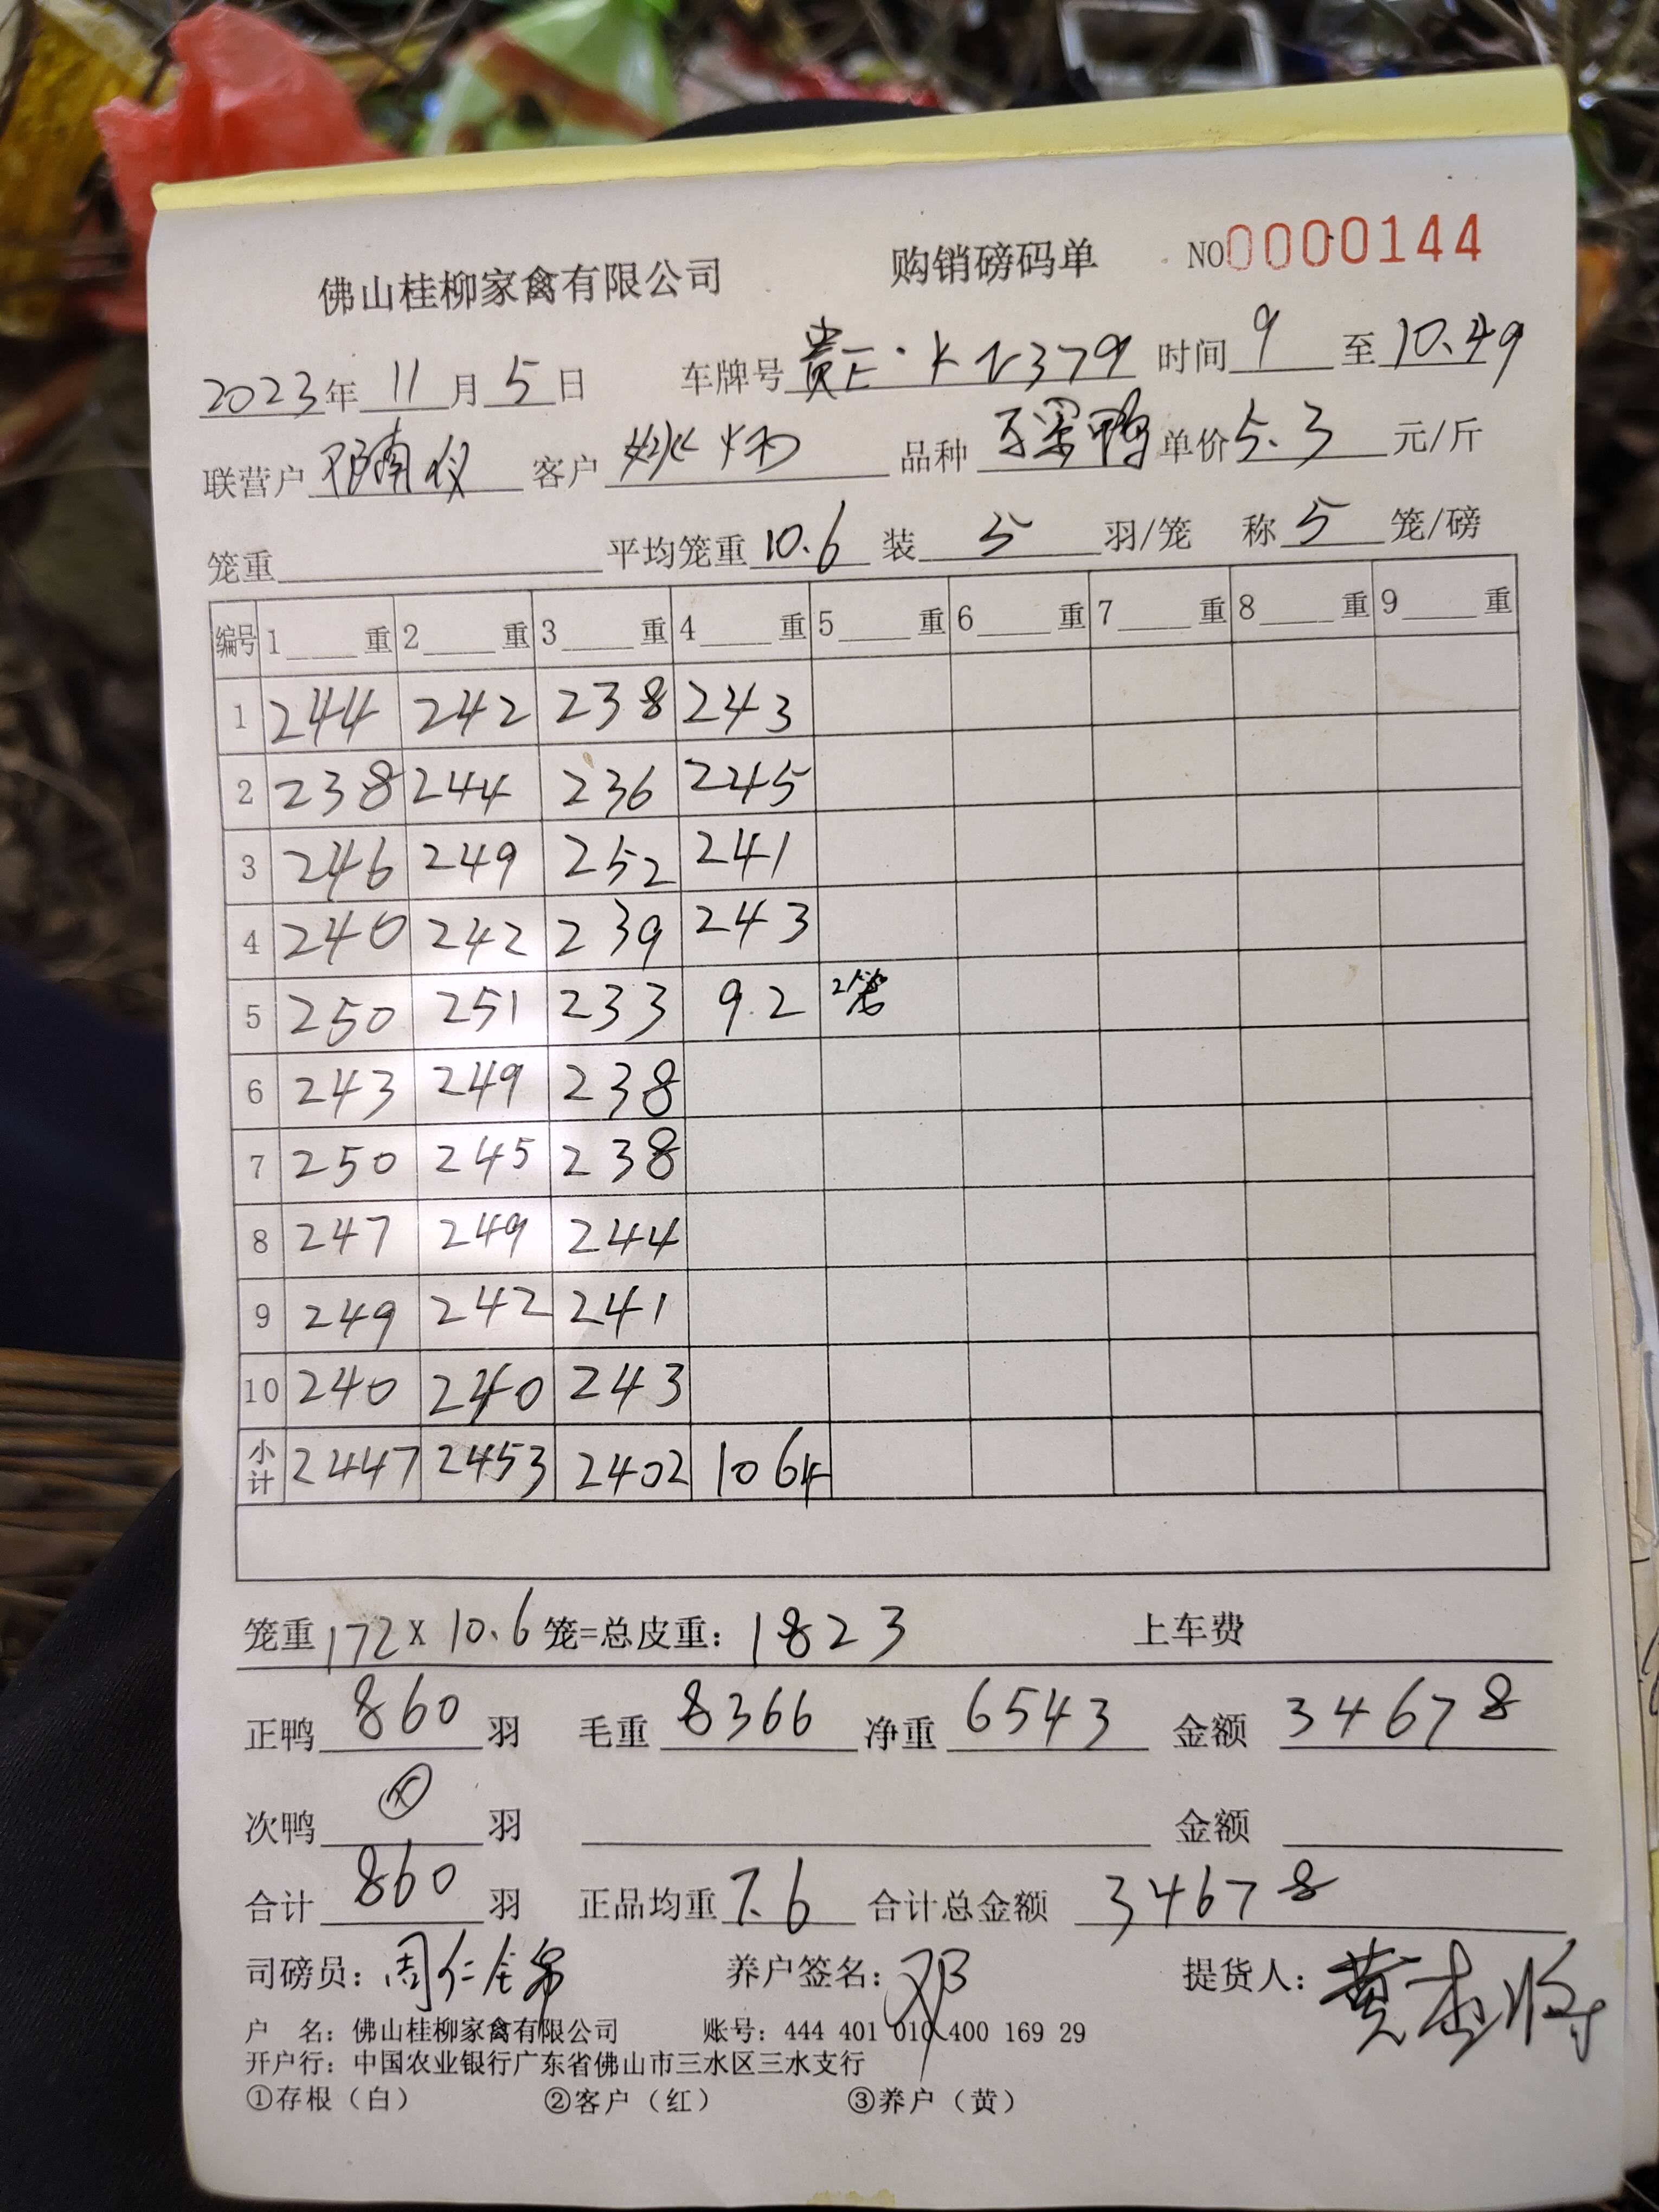 佛山桂柳家禽有限公司 购销磅码单 NO0000144
2023年 11 月 5 日 车牌号 贵E·K 379 时间 9 至 10.49
联营户 邓南仪 客户 姚炳 品种 鸭 单价 5.3 元/斤
笼重 平均笼重 10.6 装 5 羽/笼 称 5 笼/磅
编号 1 重 2 重 3 重 4 重 5 重 6 重 7 重 8 重 9 重
1 244 242 238 243
2 238 244 236 245
3 246 249 252 241
4 240 242 239 243
5 250 251 233 92 2笼
6 243 249 238
7 250 245 238
8 247 249 244
9 249 242 241
10 240 240 243
小计 2447 2453 2402 1064
笼重 172 X 10.6 笼=总皮重: 1823 上车费
正鸭 860 羽 毛重 8366 净重 6543 金额 34678
次鸭 羽 金额
合计 860 羽 正品均重 7.6 合计总金额 34678
司磅员: 周仁 养户签名: 邓 提货人: 黄
户 名: 佛山桂柳家禽有限公司 账号: 444 401 010 400 169 29
开户行: 中国农业银行广东省佛山市三水区三水支行
①存根（白） ②客户（红） ③养户（黄）